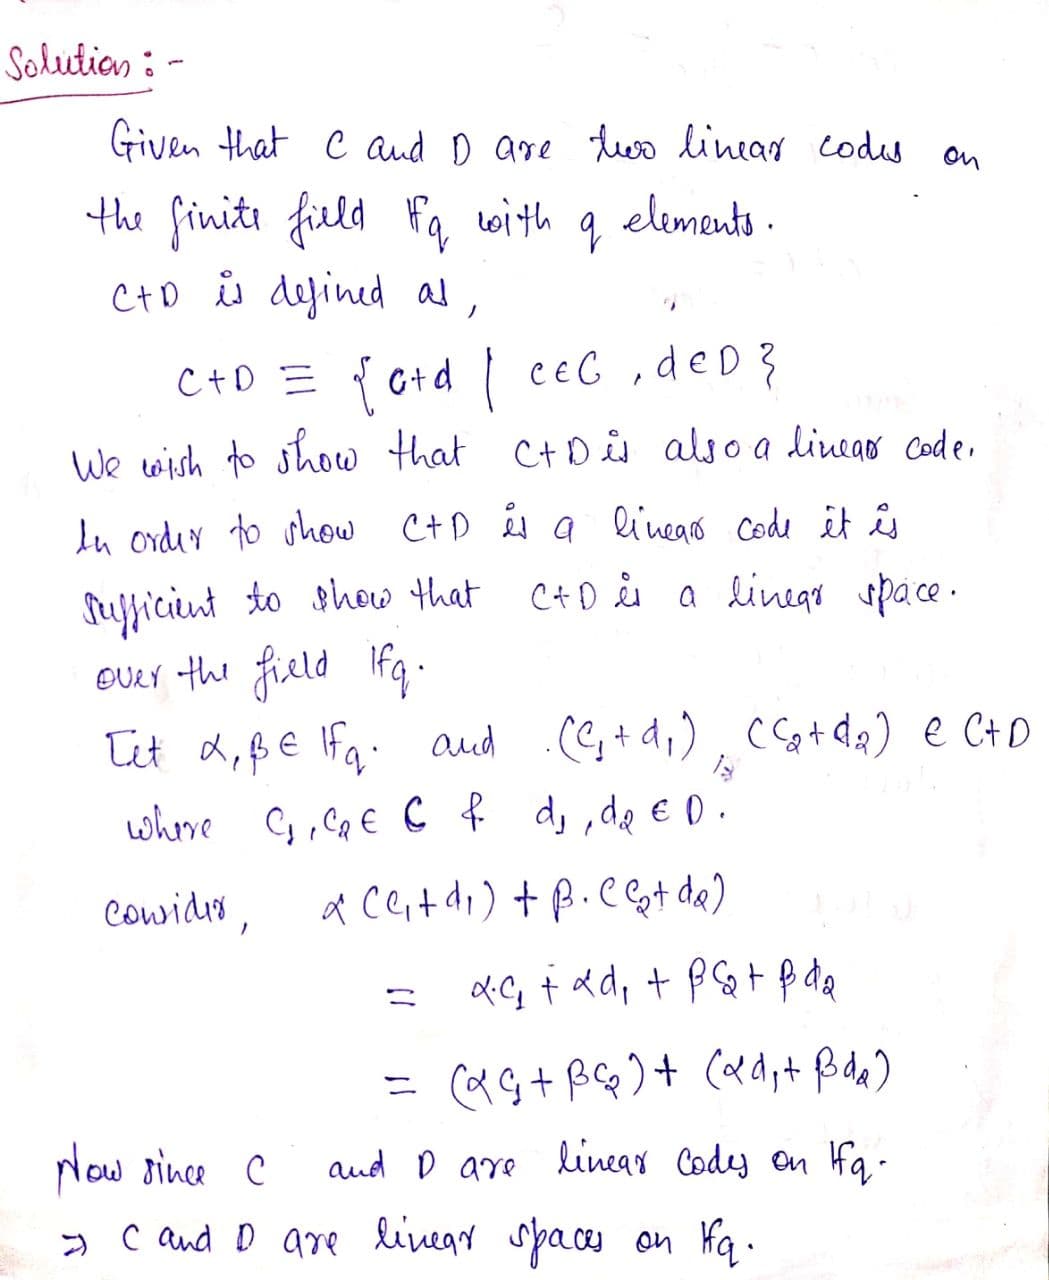 Solution :-
Given that C and D are two linear codes on
the finite field 𝔽q with q elements.
C+D is defined as,
C+D ≡ {c+d | c∈C, d∈D}
We wish to show that C+D is also a linear code.
In order to show C+D is a linear code it is
sufficient to show that C+D is a linear space.
over the field 𝔽q.
Let α, β ∈ 𝔽q. and (c₁+d₁), (c₂+d₂) ∈ C+D
where c₁, c₂ ∈ C & d₁, d₂ ∈ D.
Consider, α(c₁+d₁) + β.(c₂+d₂)
= α.c₁ + αd₁ + βc₂ + βd₂
= (αc₁+βc₂) + (αd₁+βd₂)
Now since C and D are linear Codes on 𝔽q.
⇒ C and D are linear spaces on 𝔽q.